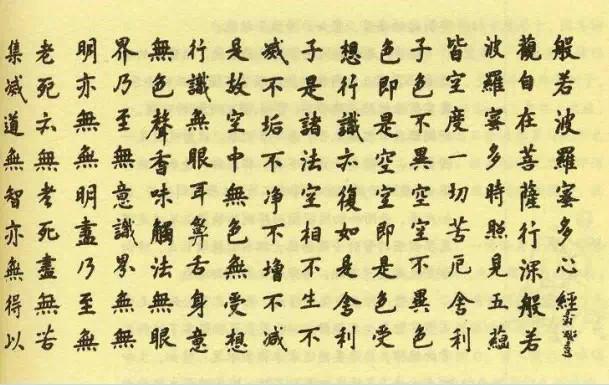 般若波羅蜜多心經
觀自在菩薩行深般若
波羅蜜多時照見五蘊
皆空度一切苦厄舍利
子色不異空空不異色
色即是空空即是色受
想行識亦復如是舍利
子是諸法空相不生不
滅不垢不净不增不減
是故空中無色無受想
行識無眼耳鼻舌身意
無色聲香味觸法無眼
界乃至無意識界無無
明亦無無明盡乃至無
老死亦無老死盡無苦
集滅道無智亦無得以